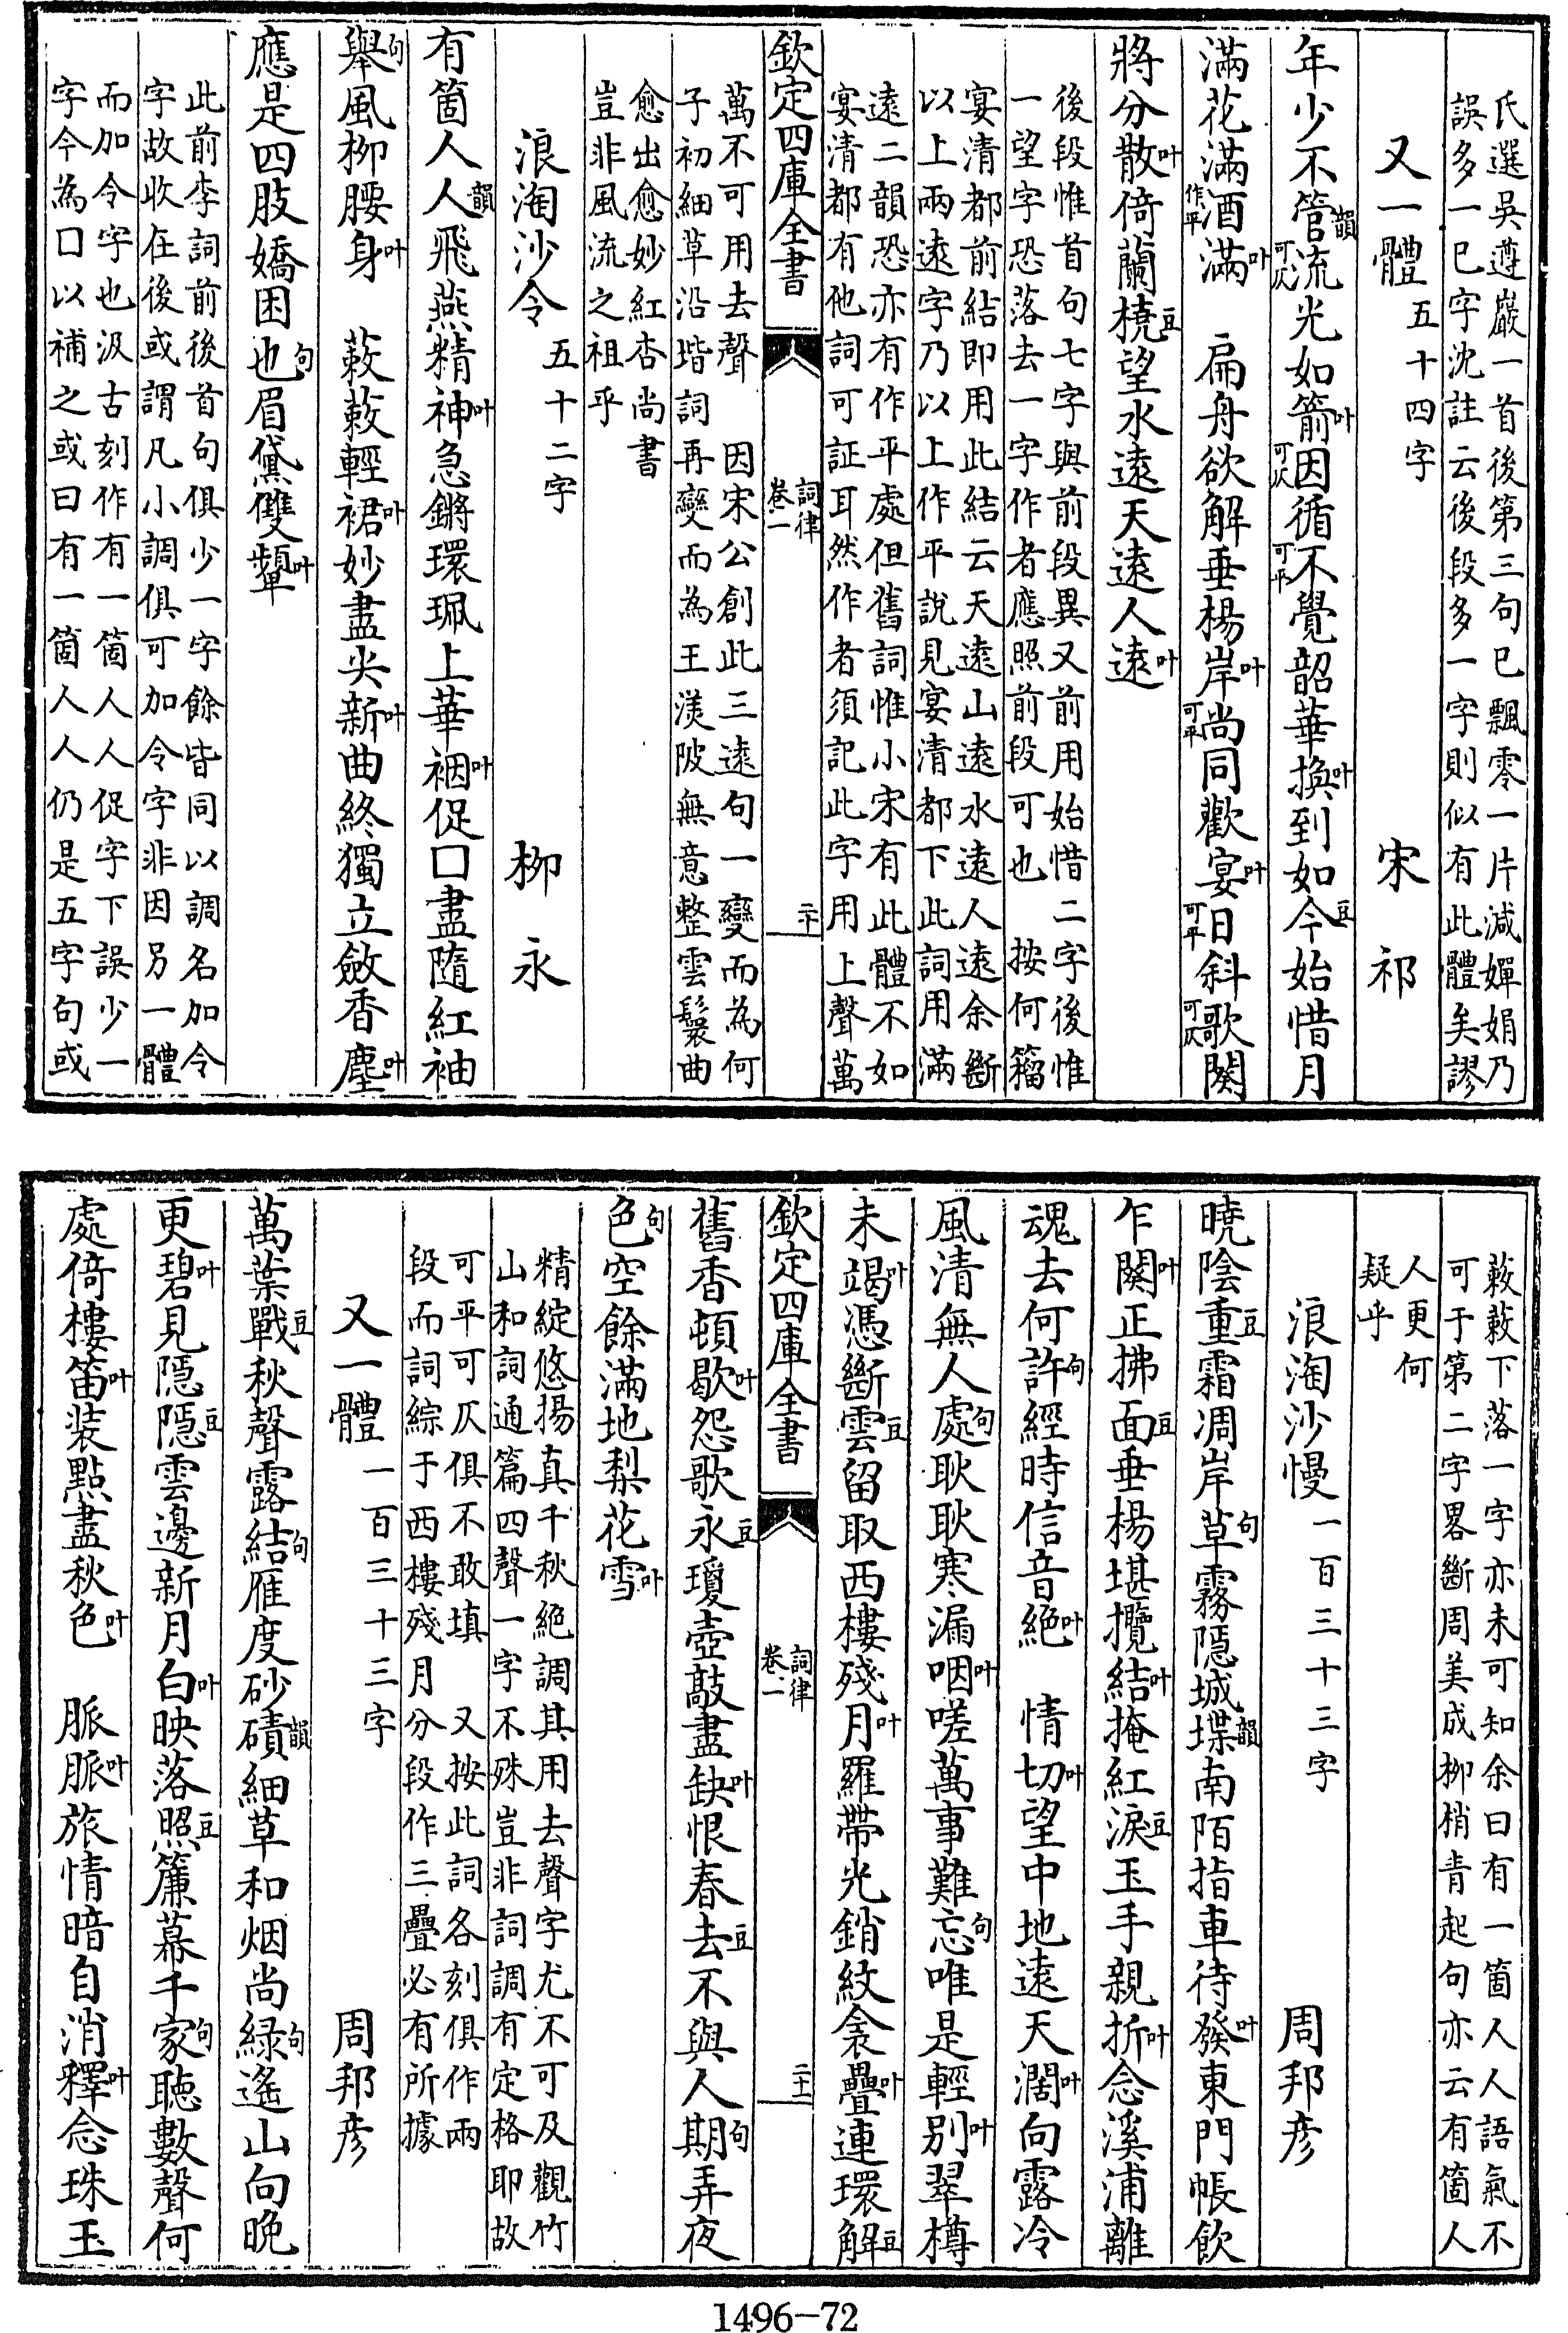 氏選吳遵巖一首後第三句已飄零一片減嬋娟乃
誤多一已字沈註云後段多一字則似有此體矣謬
又一體 五十四字 宋祁
年少不管韻流可仄光如箭叶因可仄循不可平覺韶華換叶到如今豆始惜月
滿花滿作平酒滿叶 扁舟欲解垂楊岸叶尚可平同歡宴叶日可平斜歌可仄闋
將分散叶倚蘭橈豆望水遠天遠人遠叶
後段惟首句七字與前段異又前用始惜二字後惟
一望字恐落去一字作者應照前段可也 按何籀
宴清都前結即用此結云天遠山遠水遠人遠余斷
以上兩遠字乃以上作平說見宴清都下此詞用滿
遠二韻恐亦有作平處但舊詞惟小宋有此體不如
宴清都有他詞可証耳然作者須記此字用上聲萬
欽定四庫全書 詞律 卷一 二十
萬不可用去聲 因宋公創此三遠句一變而為何
子初細草沿堦詞再變而為王渼陂無意整雲鬟曲
愈出愈妙紅杏尚書
豈非風流之祖乎
浪淘沙令 五十二字 柳永
有箇人人韻飛燕精神叶急鏘環珮上華裀叶促口盡隨紅袖
舉句風柳腰身叶 蔌蔌輕裙叶妙盡尖新叶曲終獨立斂香塵叶
應是四肢嬌困也句眉黛雙顰叶
此前李詞前後首句俱少一字餘皆同以調名加令
字故收在後或謂凡小調俱可加令字非因另一體
而加令字也汲古刻作有一箇人人促字下誤少一
字今為口以補之或曰有一箇人人仍是五字句或
蔌蔌下落一字亦未可知余曰有一箇人人語氣不
可于第二字畧斷周美成柳梢青起句亦云有箇人
人更何
疑乎
浪淘沙慢 一百三十三字 周邦彥
曉陰重豆霜凋岸草句霧隱城堞韻南陌指車待發叶東門帳飲
乍闋叶正拂面豆垂楊堪攬結叶掩紅淚豆玉手親折叶念溪浦離
魂去何許句經時信音絶叶 情切叶望中地遠天濶叶向露冷
風清無人處句耿耿寒漏咽叶嗟萬事難忘句唯是輕別叶翠樽
未竭叶憑斷雲豆留取西樓殘月叶羅帶光銷紋衾疊叶連環解豆
欽定四庫全書 詞律 卷一 二十一
舊香頓歇叶怨歌永豆瓊壺敲盡缺叶恨春去豆不與人期句弄夜
色句空餘滿地梨花雪叶
精綻悠揚真千秋絶調其用去聲字尤不可及觀竹
山和詞通篇四聲一字不殊豈非詞調有定格耶故
可平可仄俱不敢填 又按此詞各刻俱作兩
段而詞綜于西樓殘月分段作三疊必有所據
又一體 一百三十三字 周邦彥
萬葉戰豆秋聲露結句雁度砂磧韻細草和烟尚綠句遙山向晚
更碧叶見隱隱豆雲邊新月白叶映落照豆簾幕千家句聽數聲何
處倚樓笛叶装點盡秋色叶 脈脈叶旅情暗自消釋叶念珠玉
1496-72